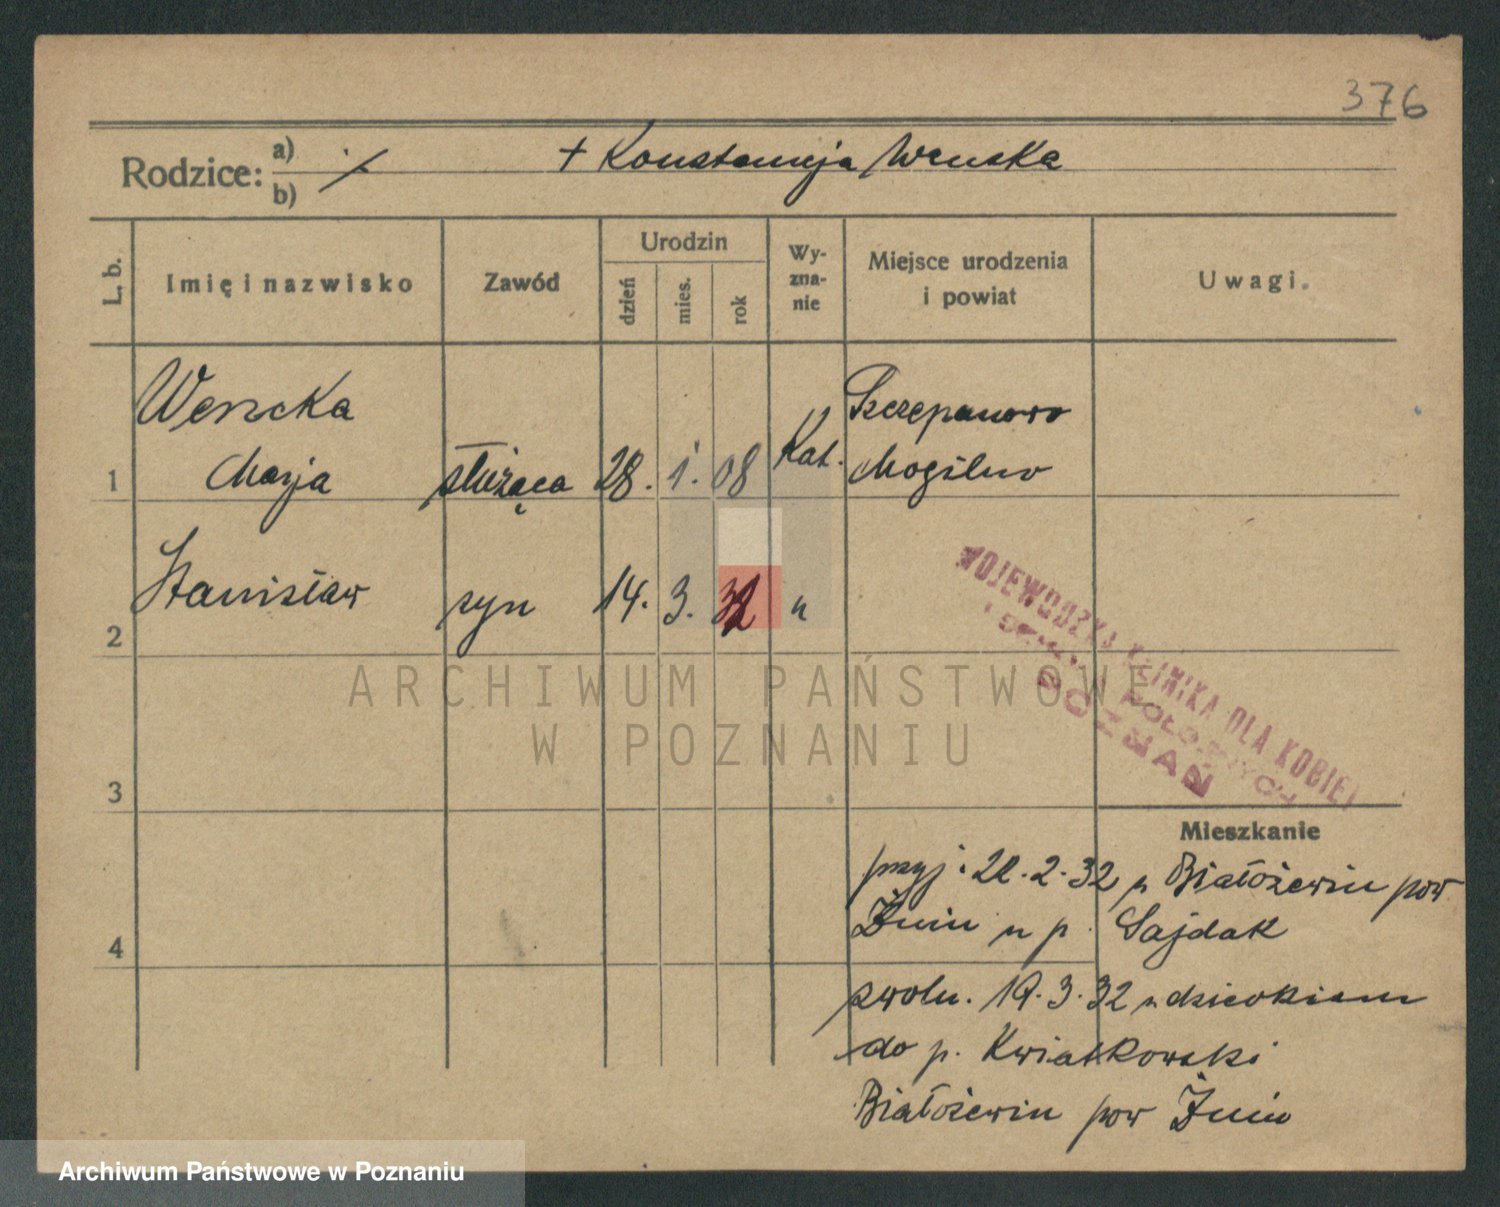 376
Rodzice: a) b) ./. + Konstancja Wenska
L. b.
Imię i nazwisko
Zawód
Urodzin
dzień
mies.
rok
Wy-
zna-
nie
Miejsce urodzenia
i powiat
Uwagi.
Wencka Szczepanowo
1 Marja służąca 28. 1. 08 Kat. Mogilno
2 Stanisław syn 14. 3. 32 "
WOJEWÓDZKA KLINIKA DLA KOBIET
POŁOŻNYCH
POZNAŃ
ARCHIWUM PAŃSTWOWE
W POZNANIU
3
Mieszkanie
przyj: 22.2.32 z Białożewin pow
4 Żnin u p. Sajdak
zwoln. 19.3.32 z dzieckiem
do p. Kwiatkowski
Białożewin pow Żnin
Archiwum Państwowe w Poznaniu